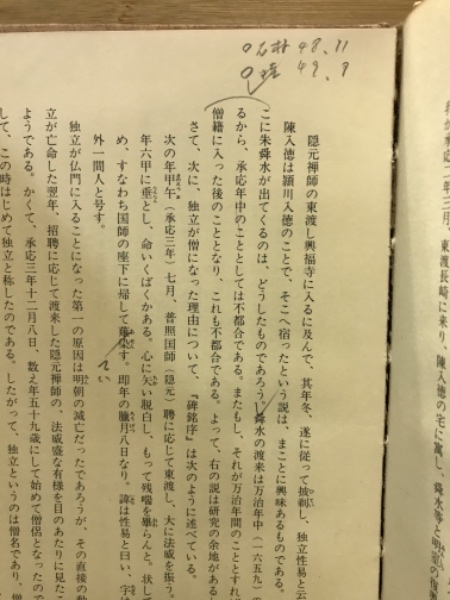 石村 48.11
49.9
隠元禅師の東渡し興福寺に入るに及んで、其年冬、遂に従って披剃し、独立性易と云
陳入徳は潁川入徳のことで、そこへ宿ったという説は、まことに興味あるものである。
こに朱舜水が出てくるのは、どうしたものであろう。舜水の渡来は万治年中(一六五九)の
るから、承応年中のこととしては不都合である。またもし、それが万治年間のこととすれ
僧籍に入った後のこととなり、これも不都合である。よって、右の説は研究の余地がある
さて、次に、独立が僧になった理由について、『碑銘序』は次のように述べている。
次の年甲午(承応三年)七月、普照国師(隠元)聘に応じて東渡し、大に法威を振う。
年六甲に垂とし、命いくばくかある。心に矢い脱白し、もって残喘を畢らんと。状して
め、すなわち国師の座下に帰して薙染す。即年の臘月八日なり。諱は性易と曰い、字は
外一間人と号す。
独立が仏門に入ることになった第一の原因は明朝の滅亡だったであろうが、その直接の動
立が亡命した翌年、招聘に応じて渡来した隠元禅師の、法威盛な有様を目のあたりに見たこ
ようである。かくて、承応三年十二月八日、数え年五十九歳にして始めて僧侶となったので
して、この時はじめて独立と称したのである。したがって、独立というのは僧名であり、僧